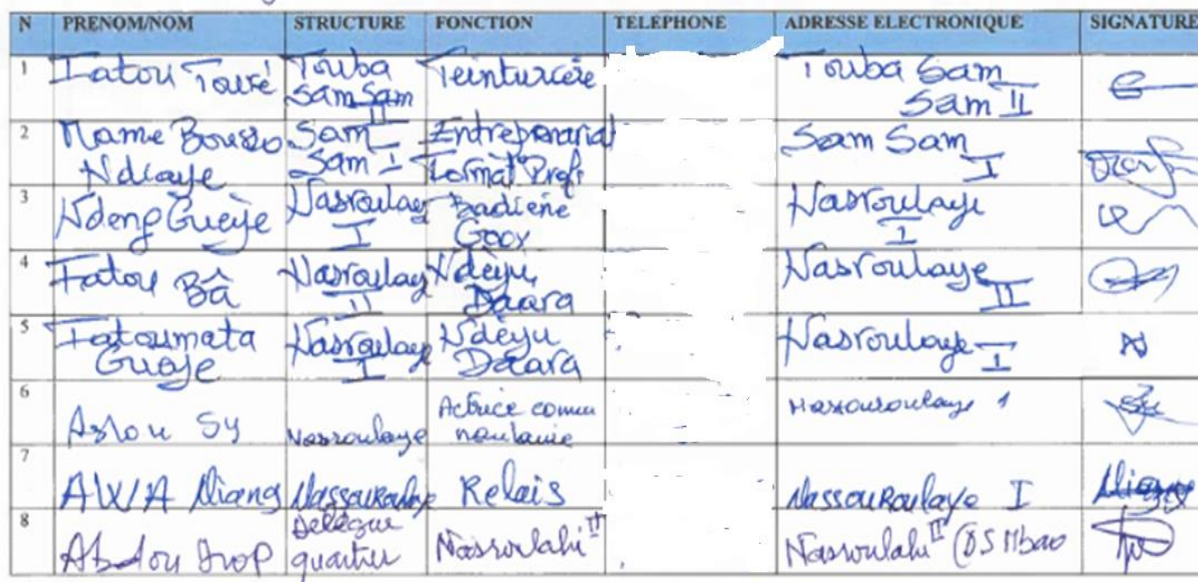 N PRENOM/NOM STRUCTURE FONCTION TELEPHONE ADRESSE ELECTRONIQUE SIGNATURE
1 Fatou Touré Touba Sam Sam II Teinturière Touba Sam Sam II
2 Mame Bousso Ndiaye Sam Sam I Entreprenariat Format° Prof. Sam Sam I
3 Ndeng Gueÿe Nasroulaye I Badiene Goox Nasroulaye I
4 Fatou Bâ Nasroulaye II Ndèyu Daara Nasroulaye II
5 Fatoumata Nasroulaye I Ndèyu Daara Nasroulaye I
6 Astou Sy Nassroulaye Actrice commu nautaire 1
7 AWA Niang Nassouroulaye Relais Nassouroulaye I Niang
8 Abdou Diop Délégué quartier Nasroulahi II Nasroulahi II (DS Mbao